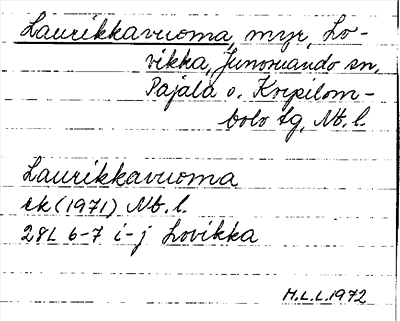 Laurikkavuoma, myr, Lo-
vikka, Junosuando sn,
Pajala o. Korpilom-
bolo tg, Nb. l.
Laurikkavuoma
ek (1971) Nb. l.
28L 6-7 i-j Lovikka
M.L.L. 1972